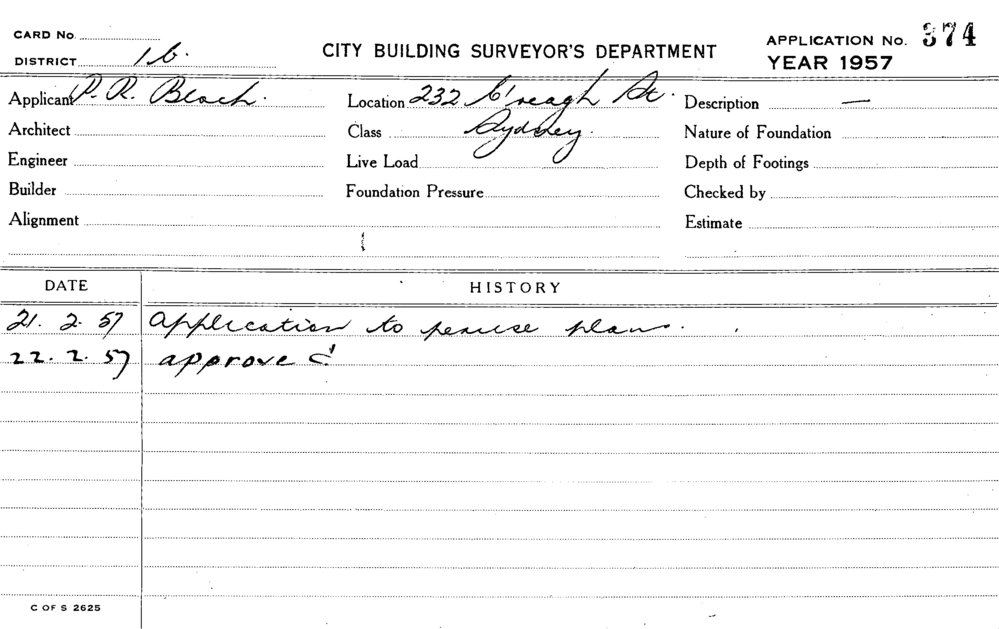 CARD No.
DISTRICT 1b.
CITY BUILDING SURVEYOR'S DEPARTMENT
APPLICATION No. 374
YEAR 1957
Applicant P. R. Bloch.
Location 232 C'reagh St.
Sydney.
Description —
Architect
Class
Nature of Foundation
Engineer
Live Load
Depth of Footings
Builder
Foundation Pressure
Checked by
Alignment
Estimate
DATE
HISTORY
21. 2. 57 Application to peruse plans.
22. 2. 57 approved
C OF S 2625